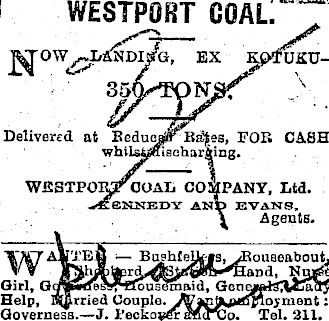 WESTPORT COAL.
NOW LANDING, EX KOTUKU—
350 TONS,
Delivered at Reduced Rates, FOR CASH
whilst discharging.
WESTPORT COAL COMPANY, Ltd.
KENNEDY AND EVANS,
Agents.
WANTED — Bushfellers, Rouseabout,
Shepherd, Station Hand, Nurse
Girl, Governess, Housemaid, Generals, Lady
Help, Married Couple. Want employment:
Governess.—J. Peckover and Co. Tel. 211.
please